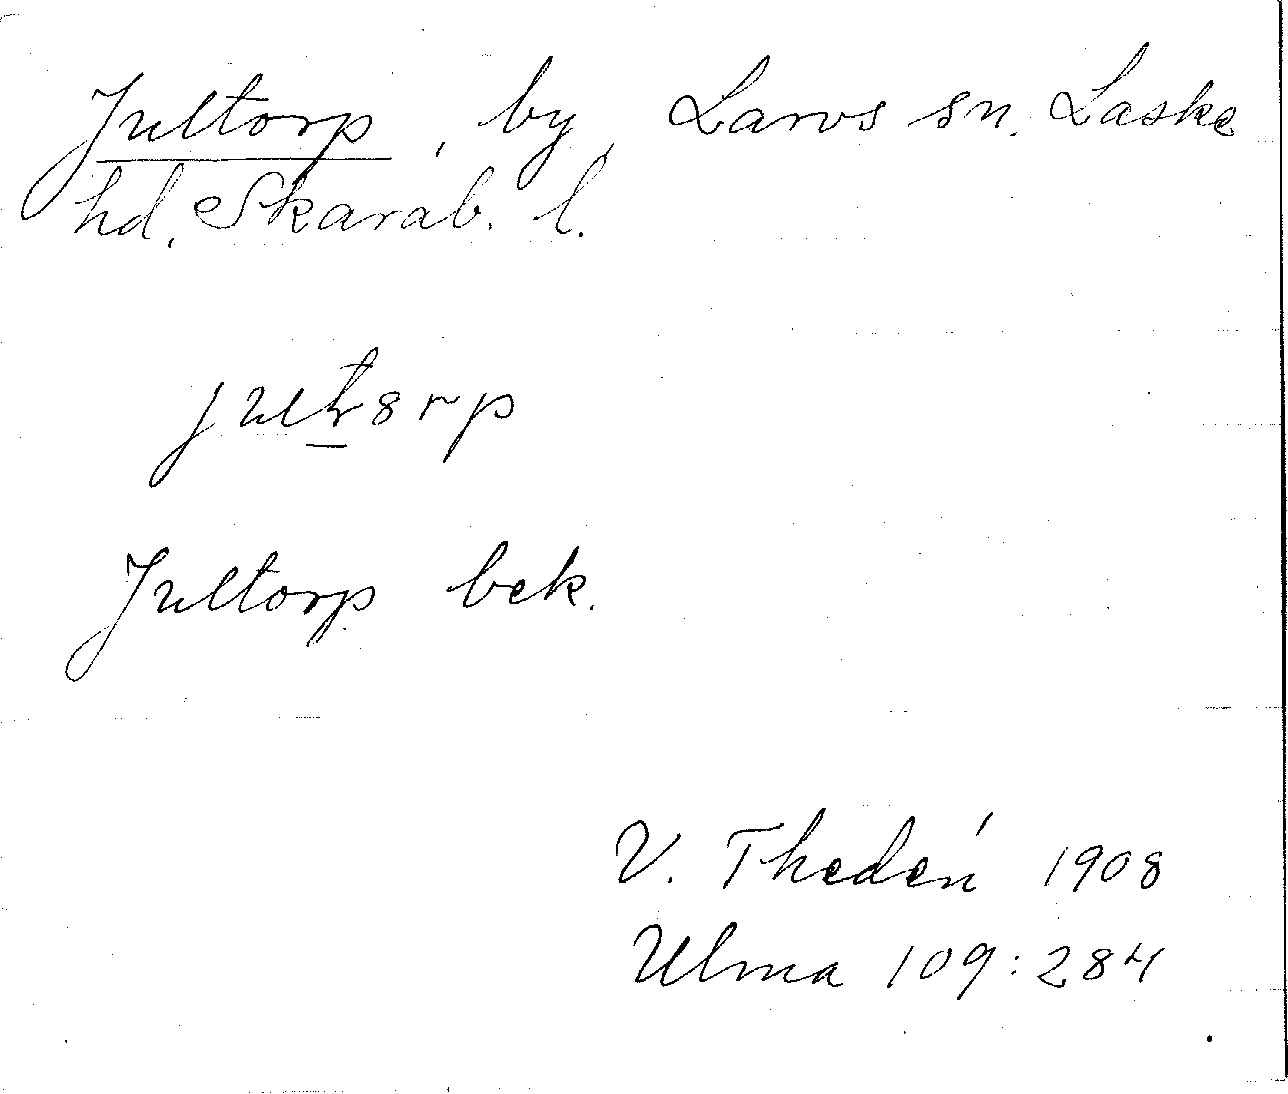 Jultorp, by, Larvs sn. Laske
hd. Skarab. l.
Jultorp bek.
V. Thedén 1908
Ulma 109:284